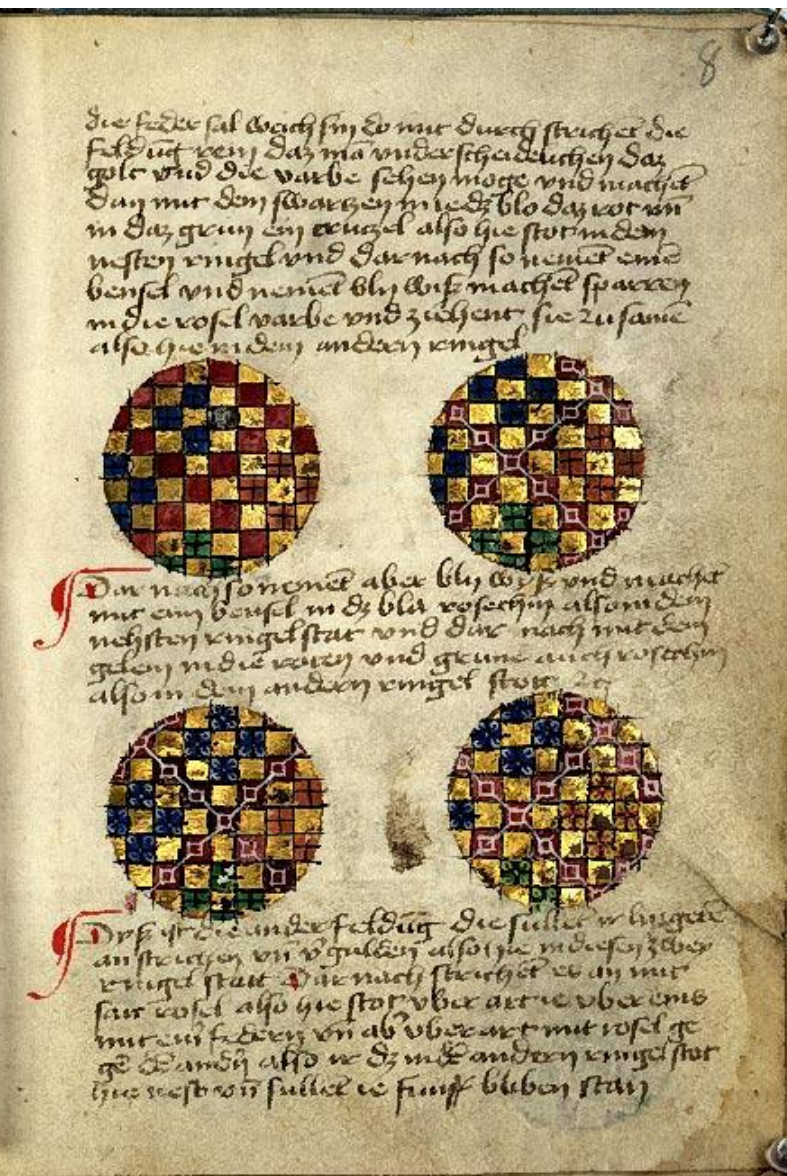 8
die feder sal weich sin do mit durch strichet die
feldūg rein daz mā vnderscheidenlichen daz
golt vnd die varbe sehen moge vnd machēt
dan mit dem swartzen in iedz blo daz rot vn̄
in daz grun ein cruczel also hie stot in dem
nesten ringel vnd dar nach so nement einē
bensel vnd nemēt bly wiß machēt sparren
in die rosel varbe vnd ziehent sie zu samē
also hie in dem andern ringel
Dar nach so nemēt aber bly wyß vnd machet
mit eim bensel in dz bla rosechin also in dem
nehsten ringel stat vnd dar nach mit dem
gelem in die roten vnd grune auch rosechin
also in dem andern ringel stott
Dyß ist die ander feldūg die sullēt ir
an strichen vn̄ v'gulden also hie in diesen zwey
ringel statt Dar nach strichēt es an mit
rosel also hie stot vber art ie vber eins
mit eim federn vn̄ ab' vber art mit rosel ge
gē dē andn̄ also ir dz in dē andern ringel stot
hie nest vn̄ sullēt ie funff bliben stan